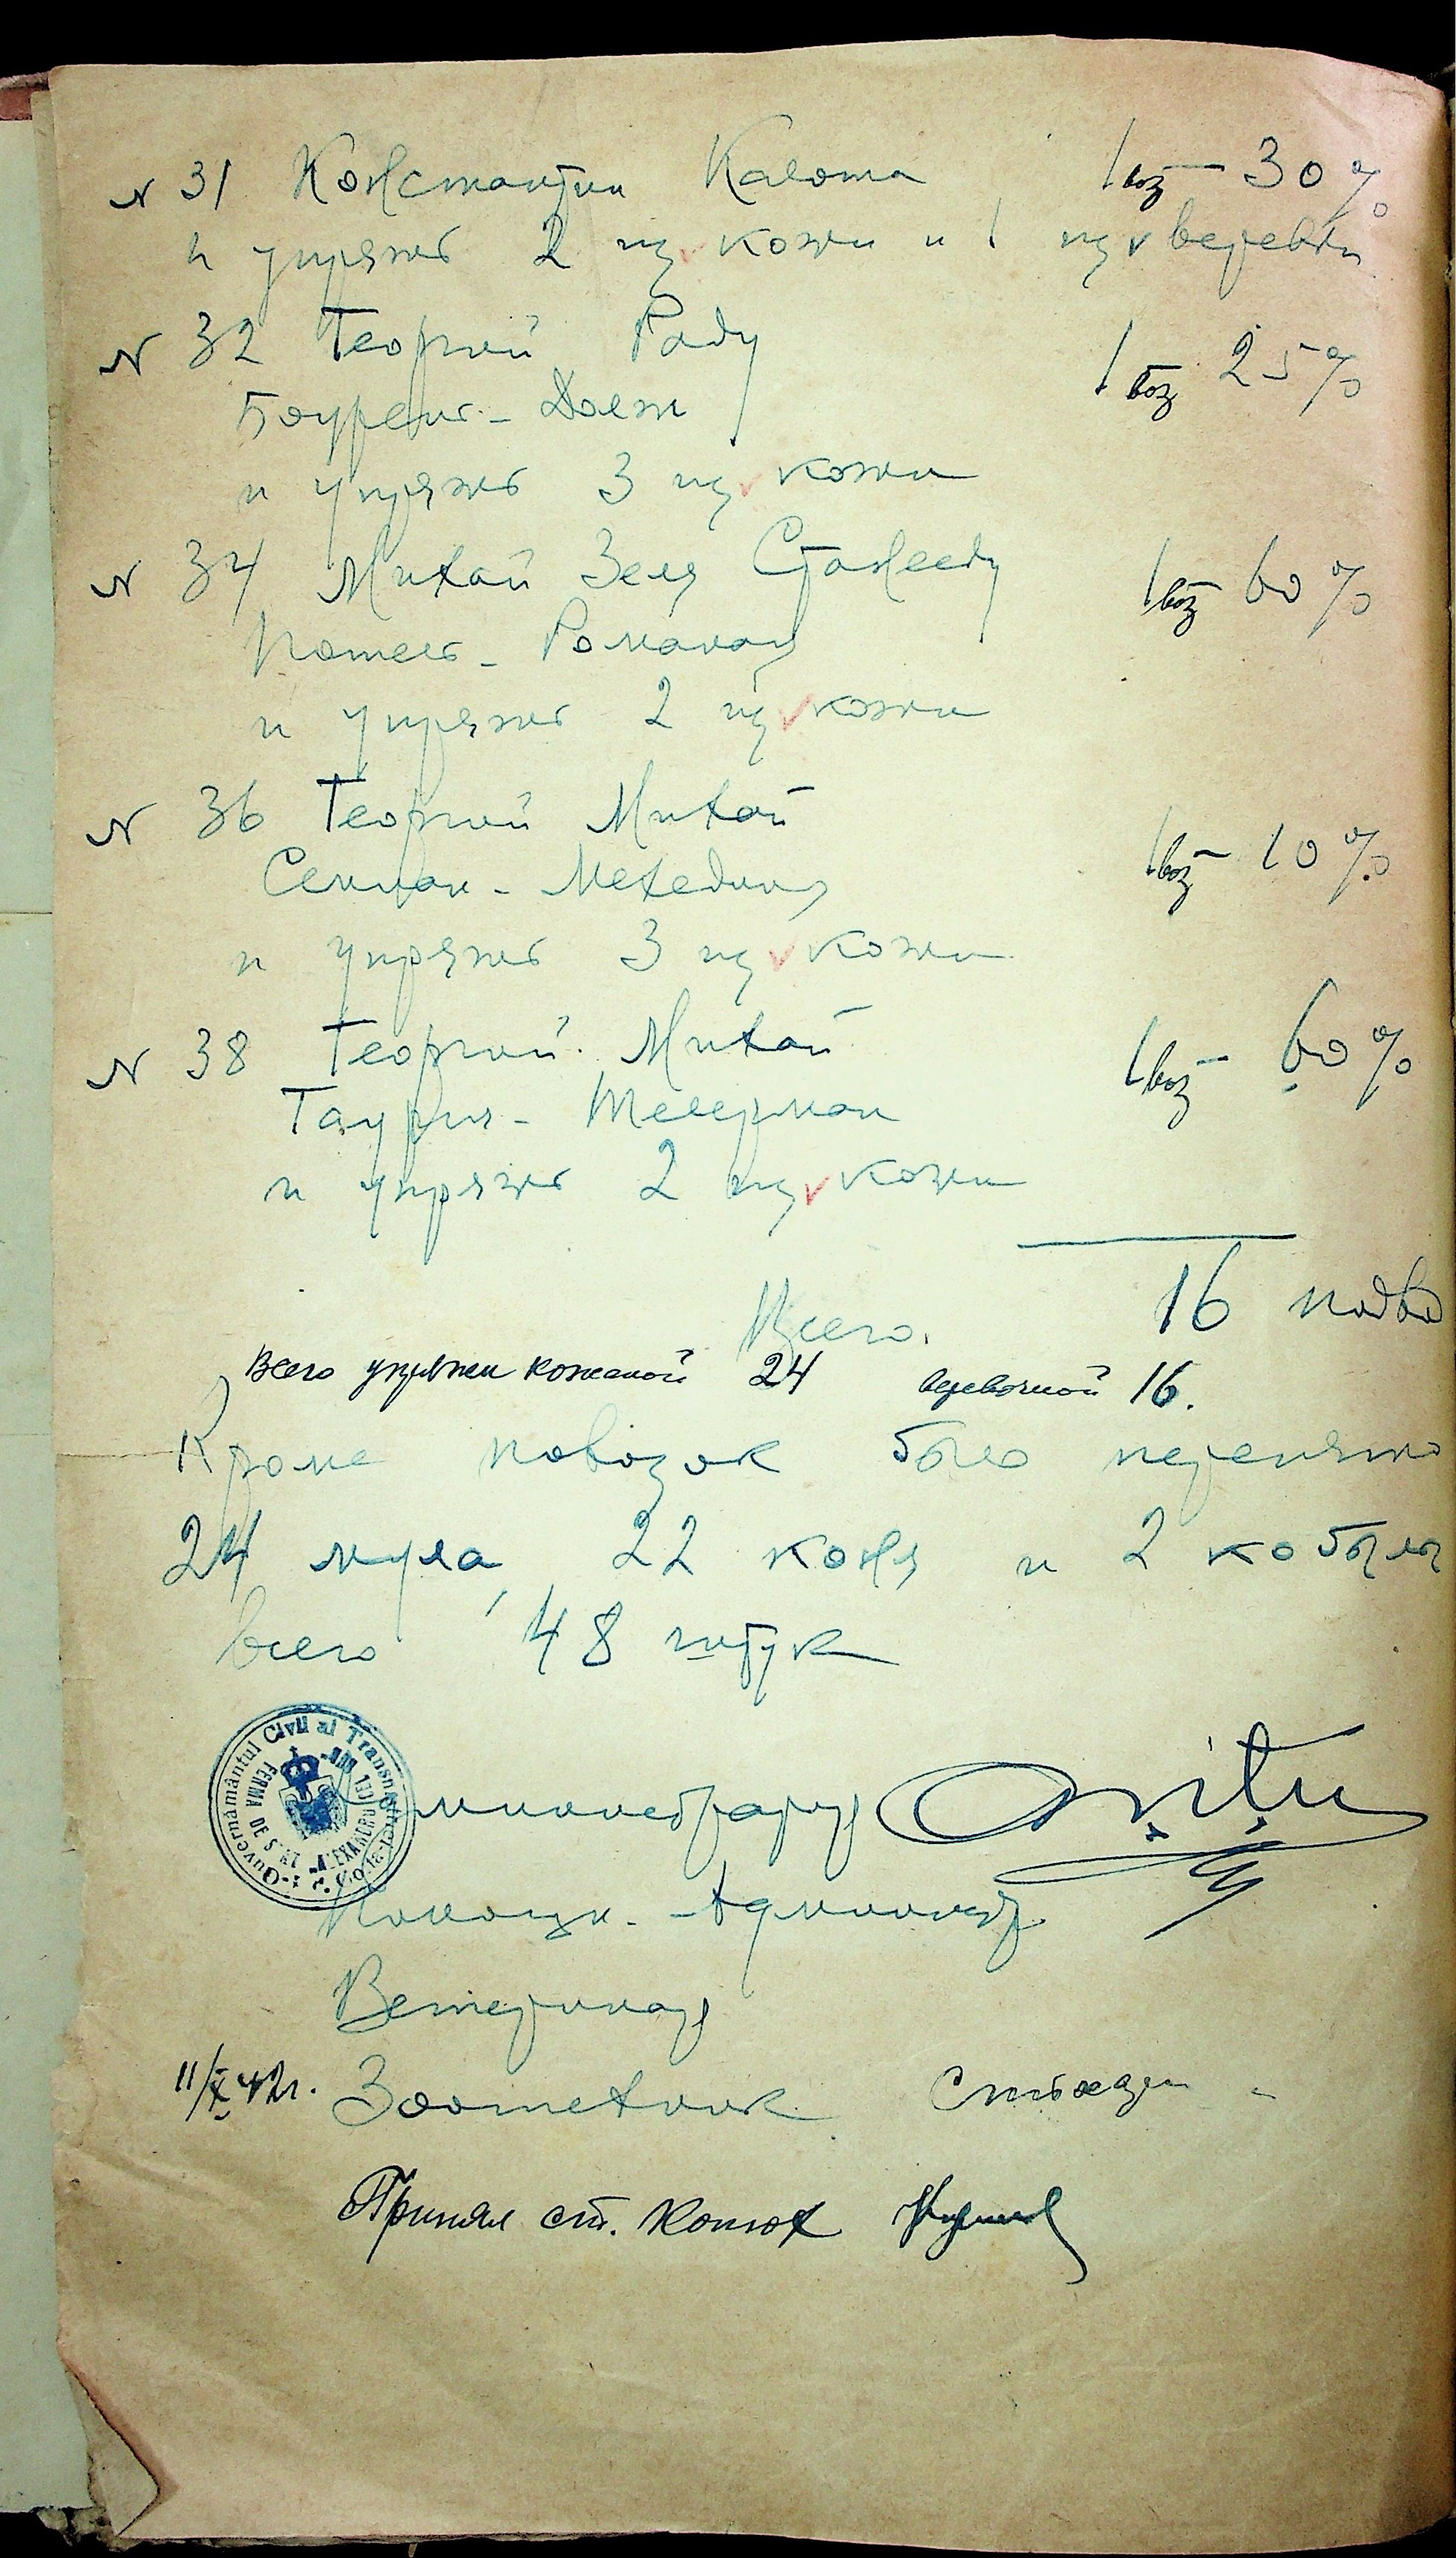 N 31 Константин Калота 1 воз — 30%
и упряжь 2 из кожи и 1 из веревки
N 32 Георгий Раду 1 воз 25%
Боурень - Долж
и упряжь 3 из кожи
N 34 Михай Зеля 1 воз — 60%
- Романац
и упряжь 2 из кожи
N 36 Георгий Михай 1 воз — 10%
- Мехединц
и упряжь 3 из кожи
N 38 Георгий Михай 1 воз — 60%
- Телерман
и упряжь 2 из кожи
Всего 16 подвод
Всего упряжи кожаной 24 веревочной 16.
Кроме повозок было перенято
24 мула, 22 коня и 2 кобылы
всего 48 штук
Guvernământul Civil al Transnistriei
FERMA DE STAT
Администратор
Помощн. - Администр.
Ветеринар
11/X 42 г. Зоотехник
Принял ст. конюх